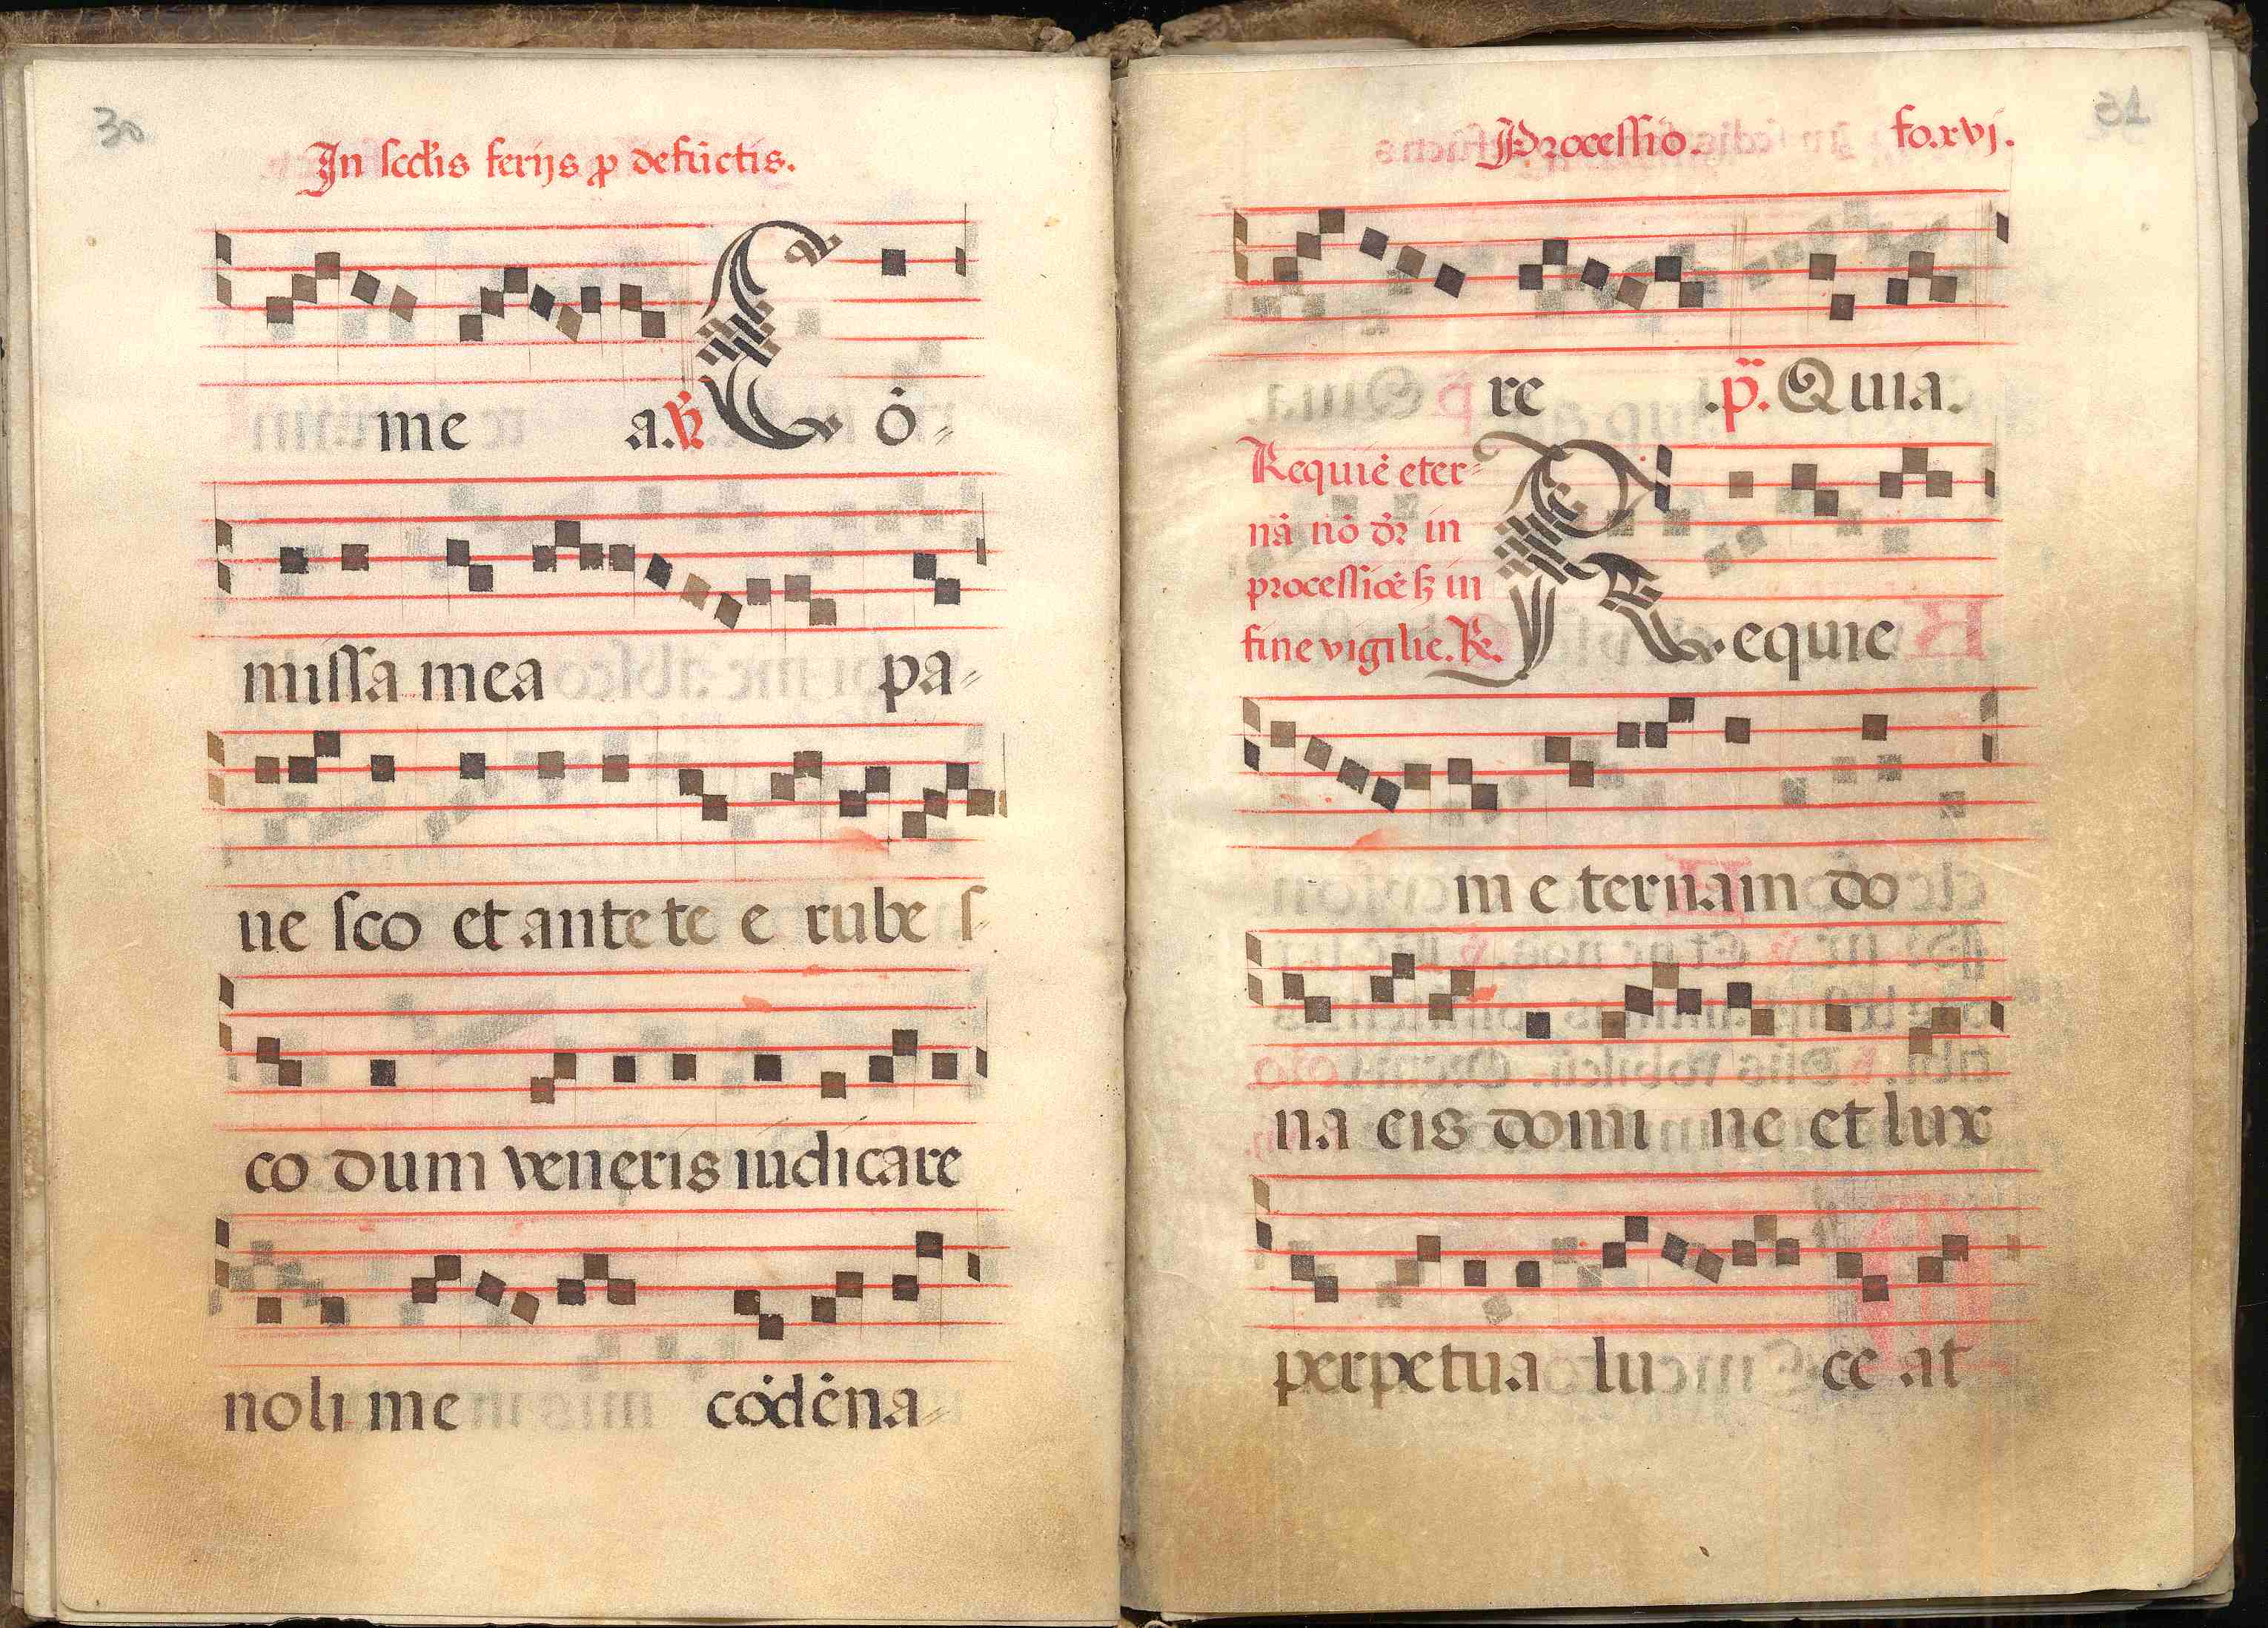 30
In scdis ferijs p̱ defūctis.
me a. ℟. Cō-
missa mea pa-
ue sco et ante te e rube s-
co dum veneris iudicare
noli me cōdēna-
31
Processio. fo.xvj.
re .p̈. Quia.
Requiē eter-
nā nō dr̄ in
processiōe sꝫ in
fine vigilie. ℟.
Requie
m e ternam do
na eis domi ne et lux
perpetua lu ce at